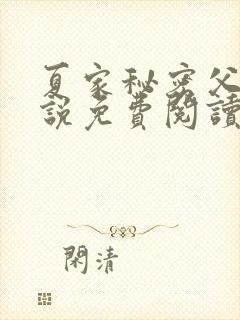 夏家秘密父
説免費閱讀
閑清